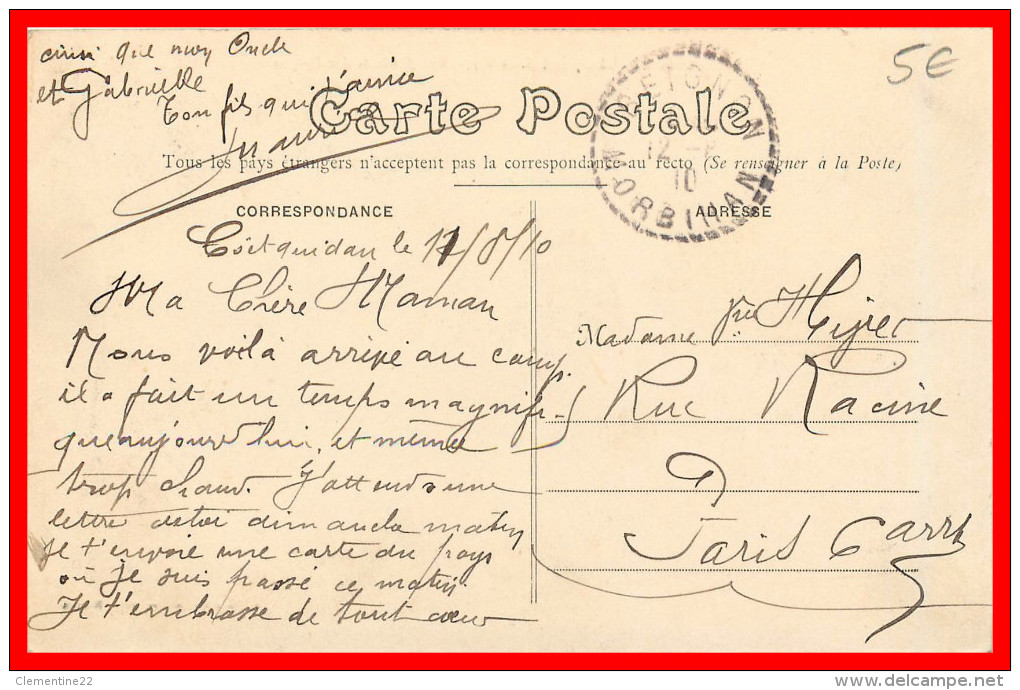 ainsi que mon Oncle
et Gabrielle
Ton fils qui t'aime
Maurice
5€
Carte Postale
Tous les pays étrangers n'acceptent pas la correspondance au recto (Se renseigner à la Poste)
CORRESPONDANCE
ADRESSE
MORBIHAN
12 10
Coëtquidan le 11/8/10
Ma Chère Maman
Nous voilà arrivé au camp.
il a fait un temps magnifi-
que aujourd'hui, et même
trop chaud. J'attends une
lettre de toi dimanche matin
Je t'envoie une carte du pays
où je suis passé ce matin.
Je t'embrasse de tout cœur
Madame
5 Rue Racine
à
Paris 6 arrt
Clementine22
delcampe.net